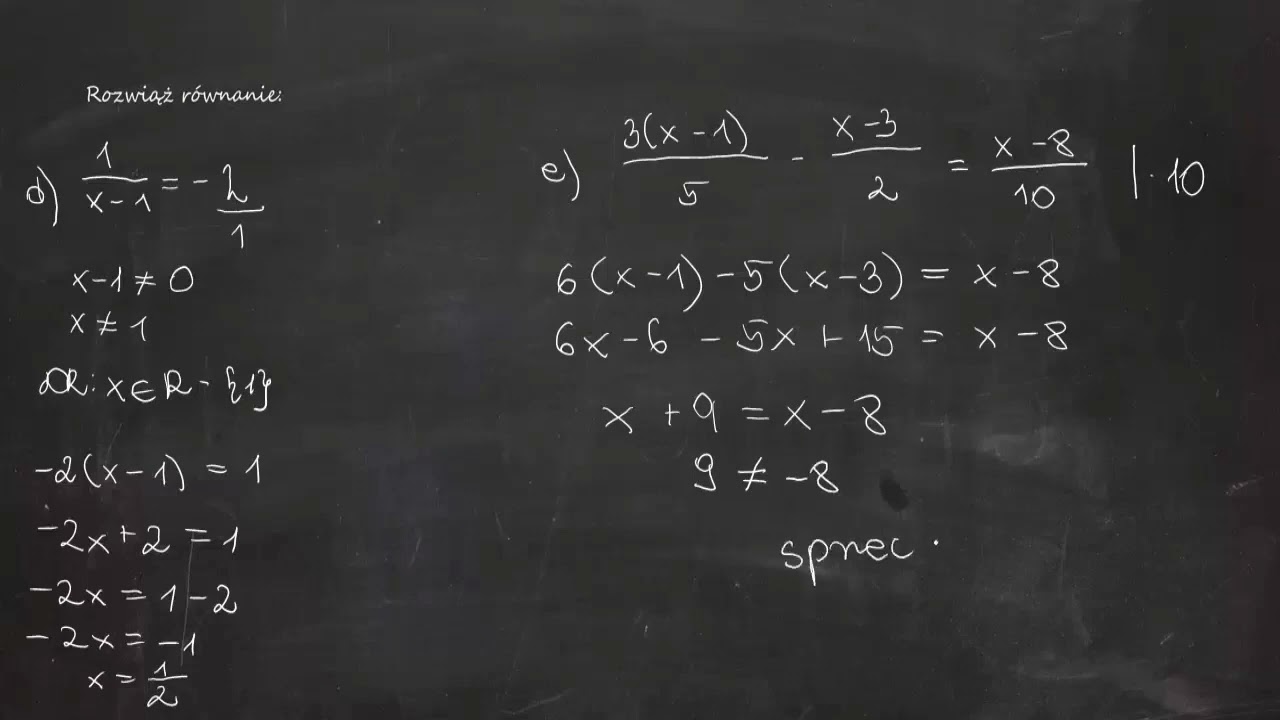 Rozwiąż równanie:
d) 1/(x-1) = -2/1
x-1 ≠ 0
x ≠ 1
DR: x ∈ R - {1}
-2(x-1) = 1
-2x+2 = 1
-2x = 1-2
-2x = -1
x = 1/2
e) 3(x-1)/5 - (x-3)/2 = (x-8)/10 |·10
6(x-1)-5(x-3) = x-8
6x-6-5x+15 = x-8
x+9 = x-8
9 ≠ -8